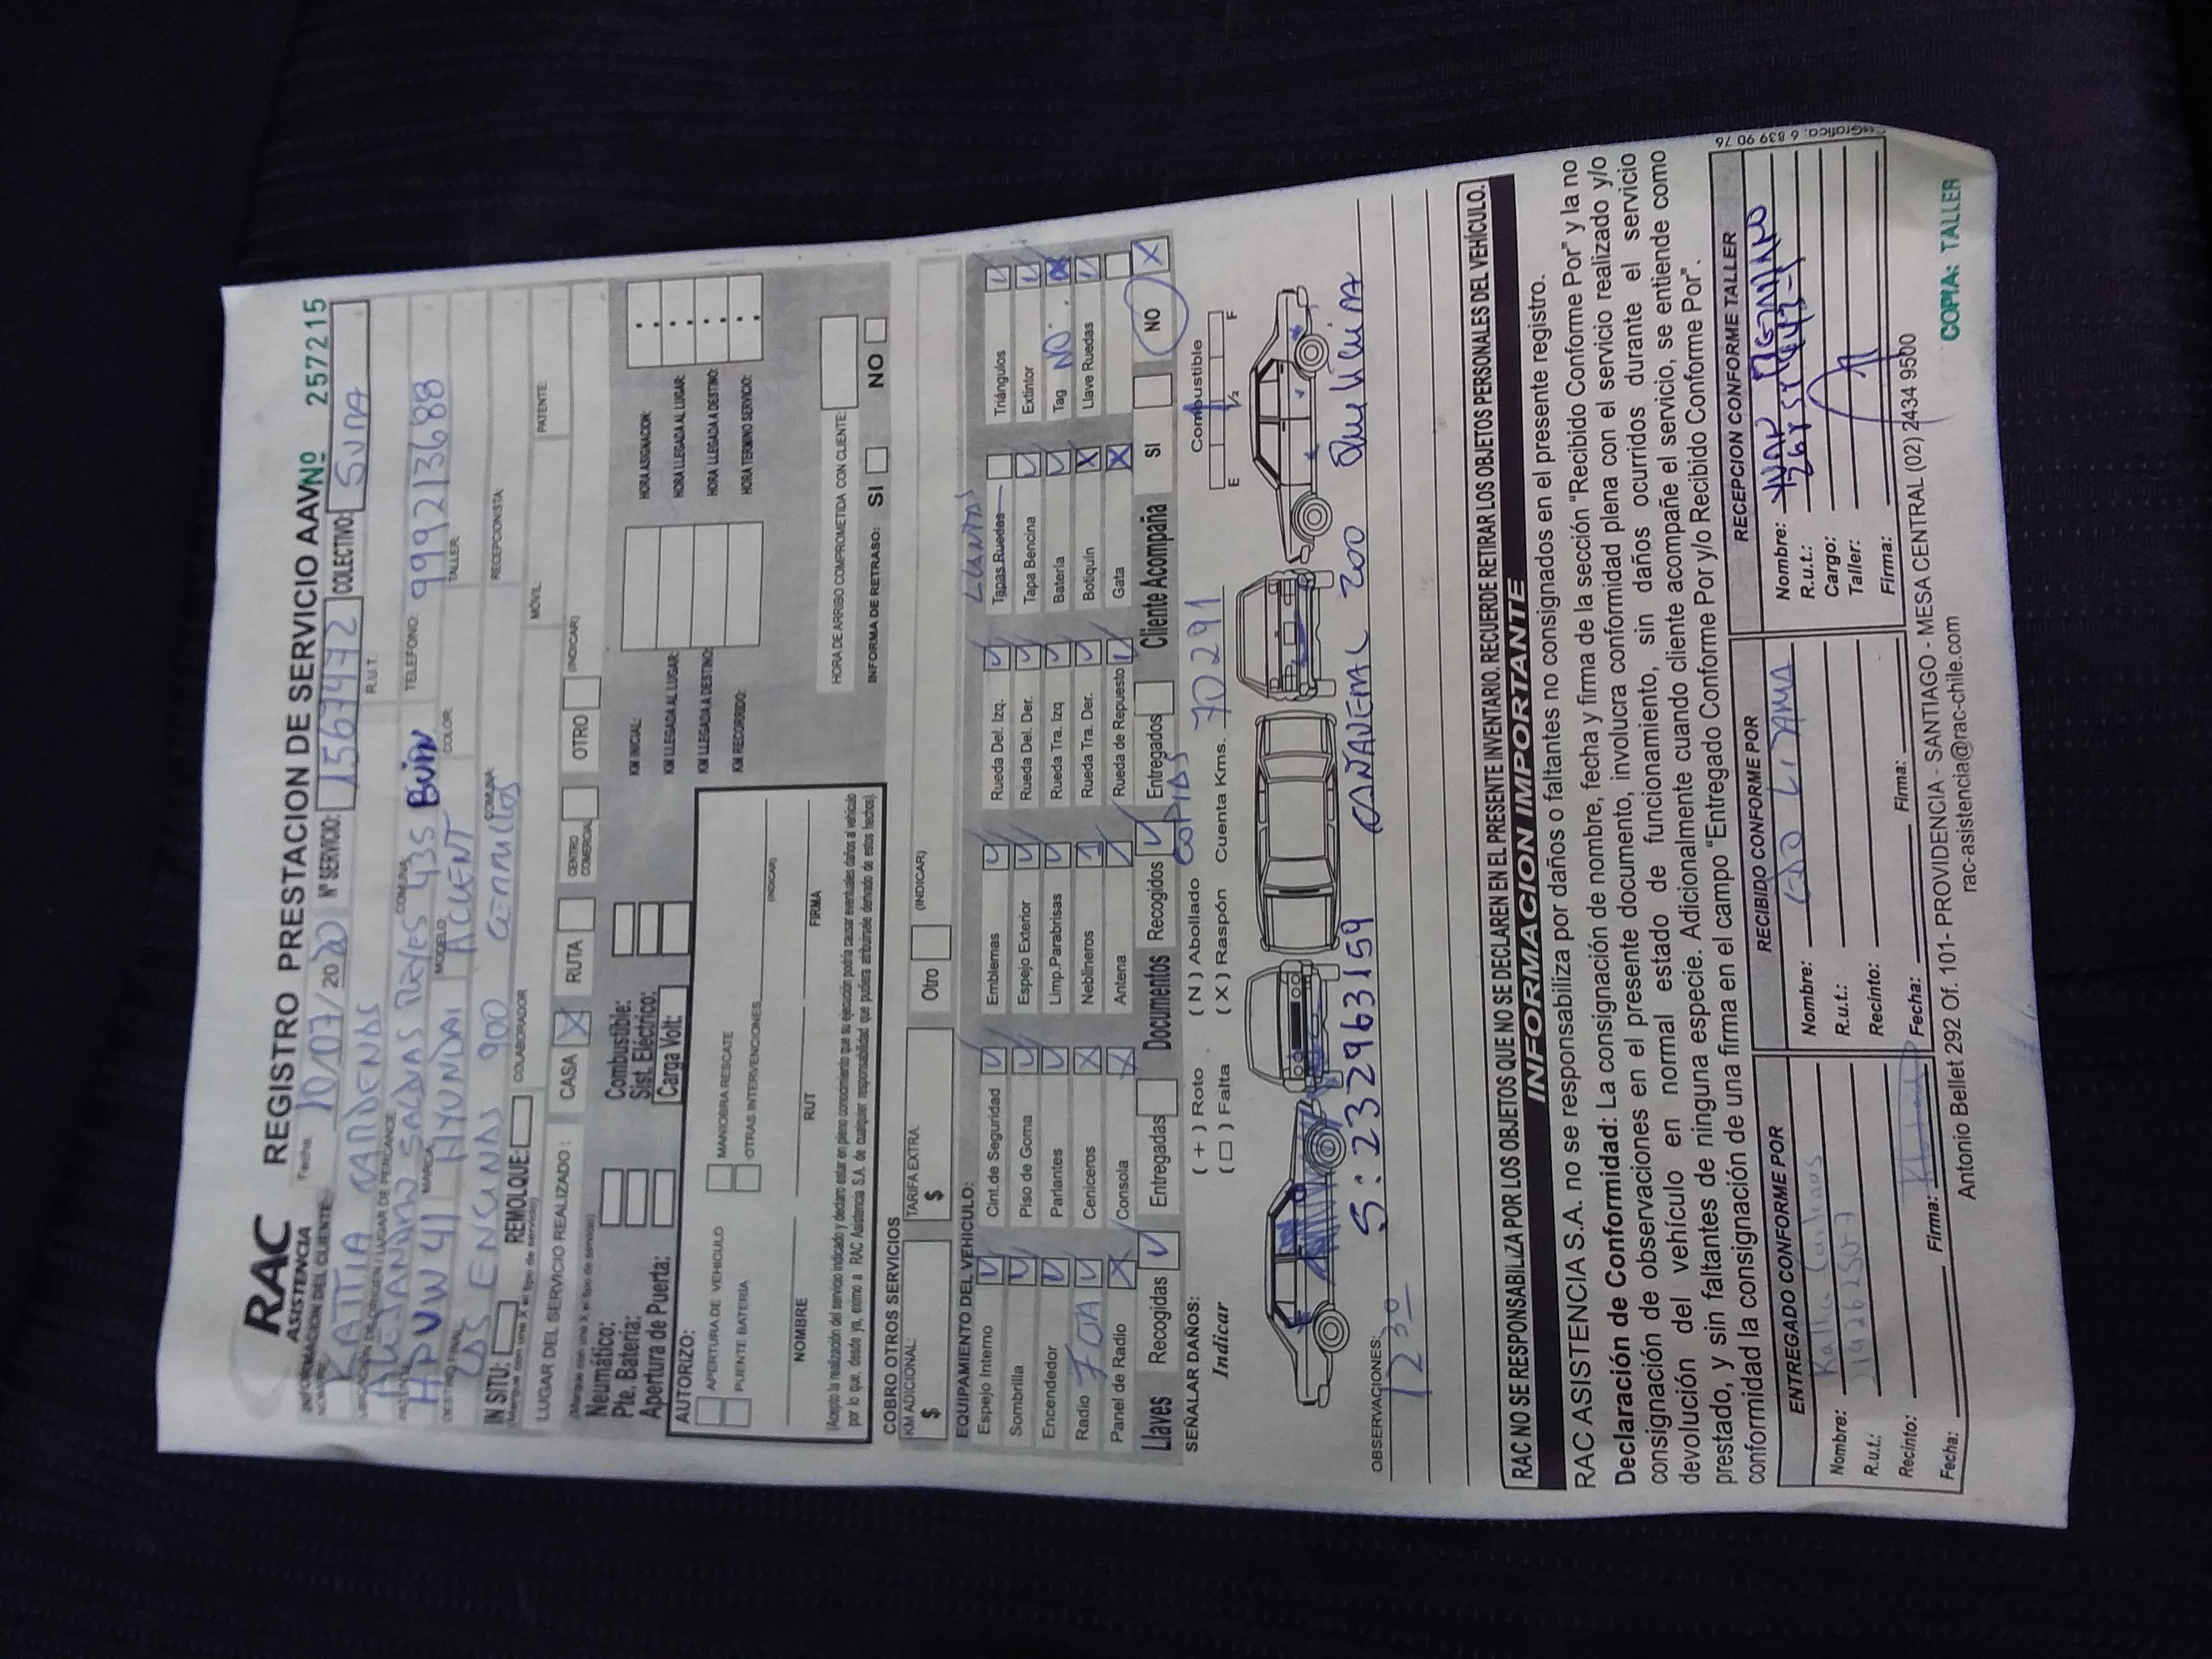 RAC
ASISTENCIA
REGISTRO PRESTACION DE SERVICIO AAV Nº 257215
INFORMACION DEL CLIENTE Fecha: 10/07/2020 Nº SERVICIO: 1567472 COLECTIVO: SURA
NOMBRE: KATTIA CARDENAS R.U.T.
UBICACION DE ORIGEN / LUGAR DE PERCANCE COMUNA: TELEFONO:
ALEJANDRO SALINAS REYES 435 BUIN 999213688
PATENTE MARCA MODELO COLOR: TALLER:
HPVW 41 HYUNDAI ACCENT
DESTINO FINAL COMUNA: RECEPCIONISTA:
LAS ENCINAS 900 Cerrillos
IN SITU: REMOLQUE: COLABORADOR MÓVIL: PATENTE:
(Marque con una X el tipo de servicio)
LUGAR DEL SERVICIO REALIZADO: CASA X RUTA CENTRO COMERCIAL OTRO (INDICAR)
(Marque con una X el tipo de servicio)
Neumático: Combustible:
Pte. Batería: Sist. Eléctrico:
Apertura de Puerta: Carga Volt:
KM INICIAL: HORA ASIGNACION:
KM LLEGADA AL LUGAR: HORA LLEGADA AL LUGAR:
KM LLEGADA A DESTINO: HORA LLEGADA A DESTINO:
KM RECORRIDO: HORA TERMINO SERVICIO:
AUTORIZO:
APERTURA DE VEHICULO MANIOBRA RESCATE
PUENTE BATERIA OTRAS INTERVENCIONES (INDICAR)
NOMBRE RUT FIRMA
(Acepto la realización del servicio indicado y declaro estar en pleno conocimiento que su ejecución podría causar eventuales daños al vehículo
por lo que, desde ya, eximo a RAC Asistencia S.A. de cualquier responsabilidad que pudiera atribuírsele derivado de estos hechos).
HORA DE ARRIBO COMPROMETIDA CON CLIENTE:
INFORMA DE RETRASO: SI NO
COBRO OTROS SERVICIOS
KM ADICIONAL: $ TARIFA EXTRA $ Otro (INDICAR)
EQUIPAMIENTO DEL VEHICULO: LLANTAS
Espejo Interno Cint.de Seguridad Emblemas Rueda Del. Izq. Tapas Ruedas Triángulos
Sombrilla Piso de Goma Espejo Exterior Rueda Del. Der. Tapa Bencina Extintor
Encendedor Parlantes Limp.Parabrisas Rueda Tra. Izq Batería Tag NO
Radio Ceniceros X Neblineros 1 Rueda Tra. Der. Botiquín X Llave Ruedas
Panel de Radio X Consola X Antena Rueda de Repuesto Gata X
Llaves Recogidas Entregadas Documentos Recogidos Entregados Cliente Acompaña SI NO X
COPIAS
SEÑALAR DAÑOS: ( + ) Roto ( N ) Abollado Combustible
Indicar ( □ ) Falta ( X ) Raspón Cuenta Kms. 70291 E ½ F
S: 232963159 CAÑAVERAL 200 Quilicura
OBSERVACIONES:
1230
RAC NO SE RESPONSABILIZA POR LOS OBJETOS QUE NO SE DECLAREN EN EL PRESENTE INVENTARIO. RECUERDE RETIRAR LOS OBJETOS PERSONALES DEL VEHÍCULO.
INFORMACION IMPORTANTE
RAC ASISTENCIA S.A. no se responsabiliza por daños o faltantes no consignados en el presente registro.
Declaración de Conformidad: La consignación de nombre, fecha y firma de la sección "Recibido Conforme Por" y la no
consignación de observaciones en el presente documento, involucra conformidad plena con el servicio realizado y/o
devolución del vehículo en normal estado de funcionamiento, sin daños ocurridos durante el servicio
prestado, y sin faltantes de ninguna especie. Adicionalmente cuando cliente acompañe el servicio, se entiende como
conformidad la consignación de una firma en el campo "Entregado Conforme Por y/o Recibido Conforme Por".
ENTREGADO CONFORME POR RECIBIDO CONFORME POR RECEPCION CONFORME TALLER
Nombre: Kattia Cardenas Nombre: Nombre:
R.u.t.: R.u.t.: R.u.t.:
Recinto: Recinto: Cargo:
Taller:
Fecha: Firma: Fecha: Firma: Firma:
Antonio Bellet 292 Of. 101- PROVIDENCIA - SANTIAGO - MESA CENTRAL (02) 2434 9500
rac-asistencia@rac-chile.com
COPIA: TALLER